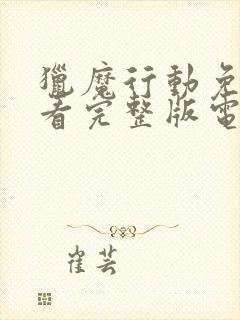 獵魔行動免
看完整版電
崔芸